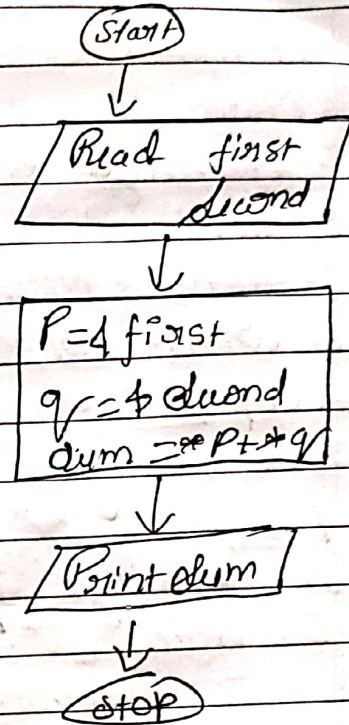 Start
Read first
second
P=&first
q=&second
sum =*P+*q
Print sum
stop